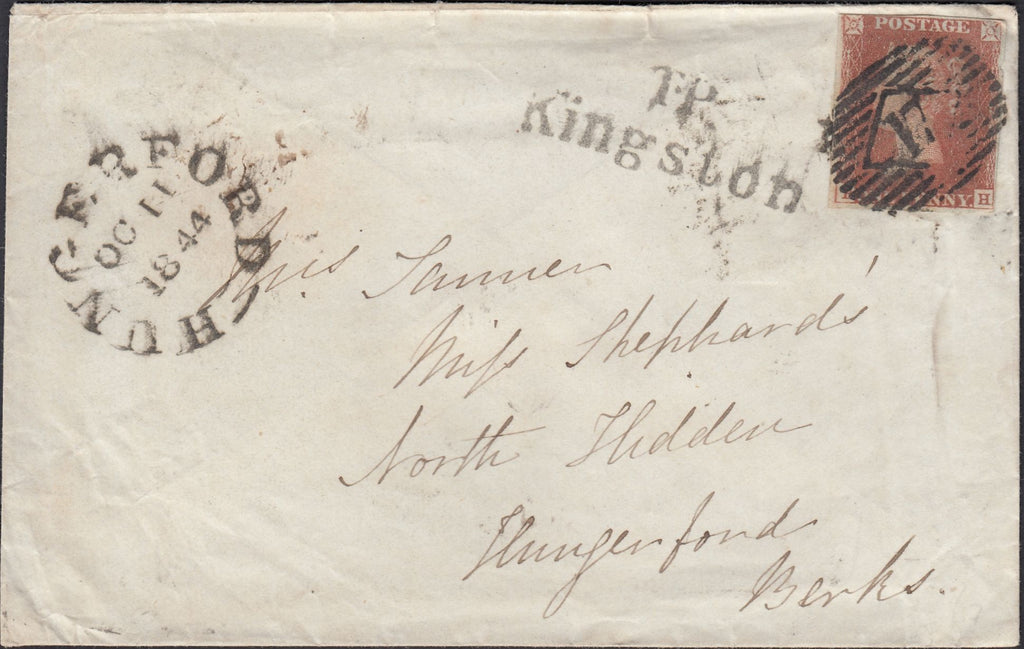 POSTAGE
NNY.
H
T.P.
Kingston
HUNGERFORD
OC 11
1844
Miss Shephards'
North Hidden
Hungerford
Berks.